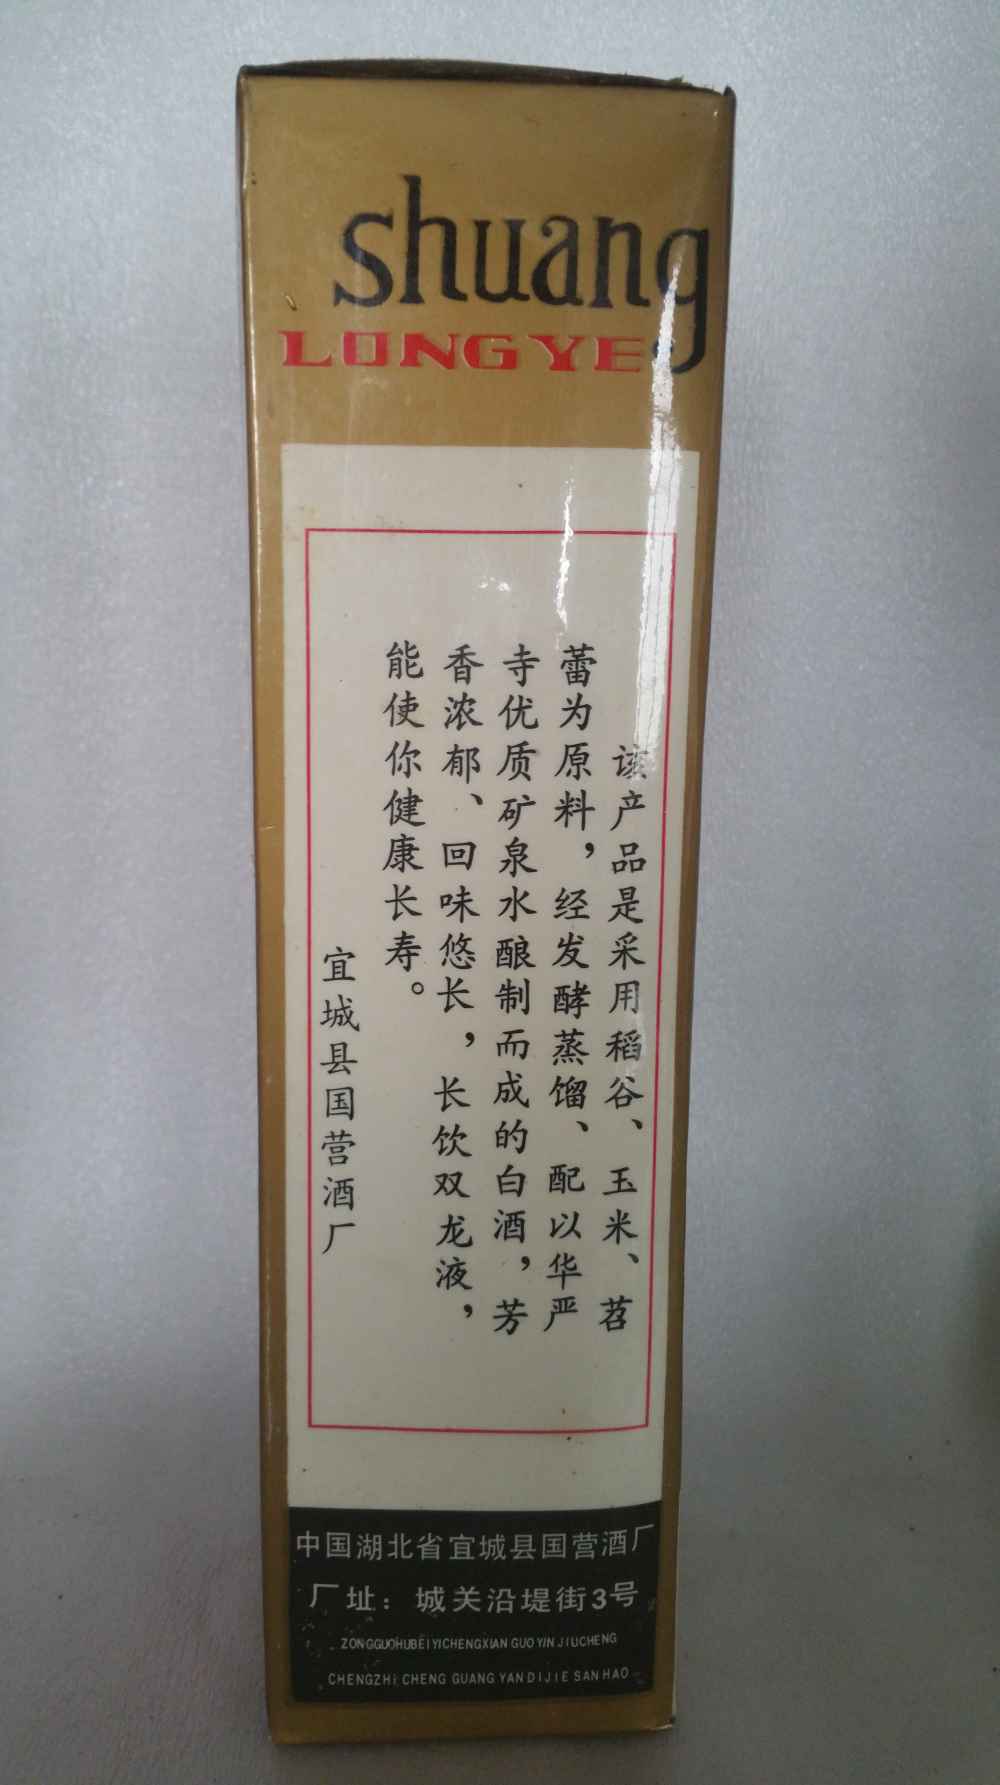 shuang
LONG YE
该产品是采用稻谷、玉米、苕
蕾为原料，经发酵蒸馏、配以华严
寺优质矿泉水酿制而成的白酒，芳
香浓郁、回味悠长，长饮双龙液，
能使你健康长寿。
宜城县国营酒厂
中国湖北省宜城县国营酒厂
厂址：城关沿堤街3号
ZONGGUOHUBEIYICHENGXIAN GUO YIN JIUCHENG
CHENGZHI CHENG GUANG YAN DIJIE SAN HAO